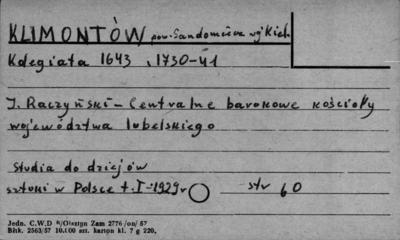 KLIMONTÓW pow. Sandomierz wj. Kiel.
Kolegiata 1643, 1730-41
J. Raczyński - Centralne barokowe kościoły
województwa lubelskiego
Studia do dziejów
sztuki w Polsce t. I - 1929 r str 60
Jedn. C.W.D /Olsztyn Zam 2776/on/57
Błk. 2563/57 10.000 szt. karton kl. 7 g 220.